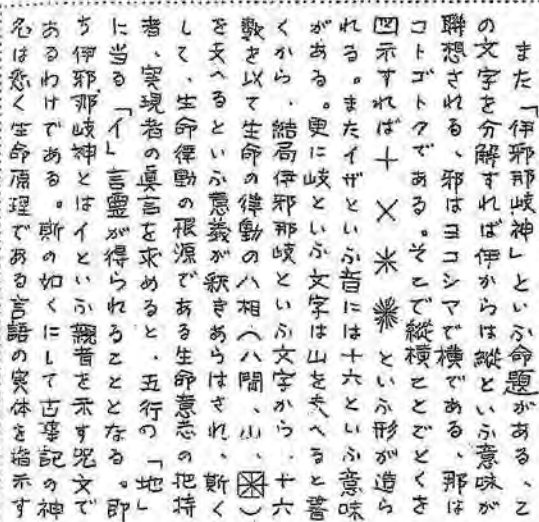 また「伊邪那岐神」といふ命題がある、こ
の文字を分解すれば伊からは縦といふ意味が
聯想される、邪はヨコシマで横である、那は
コトゴトクである。そこで縦横ことごとくを
図示すれば十 × 米 といふ形が造ら
れる。またイザといふ音には十六といふ意味
がある。更に岐といふ文字は山を支へると書
くから、結局伊邪那岐といふ文字から、十六
数を以て生命の律動の八相(八間、山、)
を支へるといふ意義が釈きあらはされ、斯く
して、生命律動の根源である生命意志の把持
者、実現者の真言を求めると、五行の「地」
に当る「イ」言霊が得られることとなる。即
ち伊邪那岐神とはイといふ親音を示す呪文で
あるわけである。斯の如くにして古事記の神
名は悉く生命原理である言語の実体を指示す